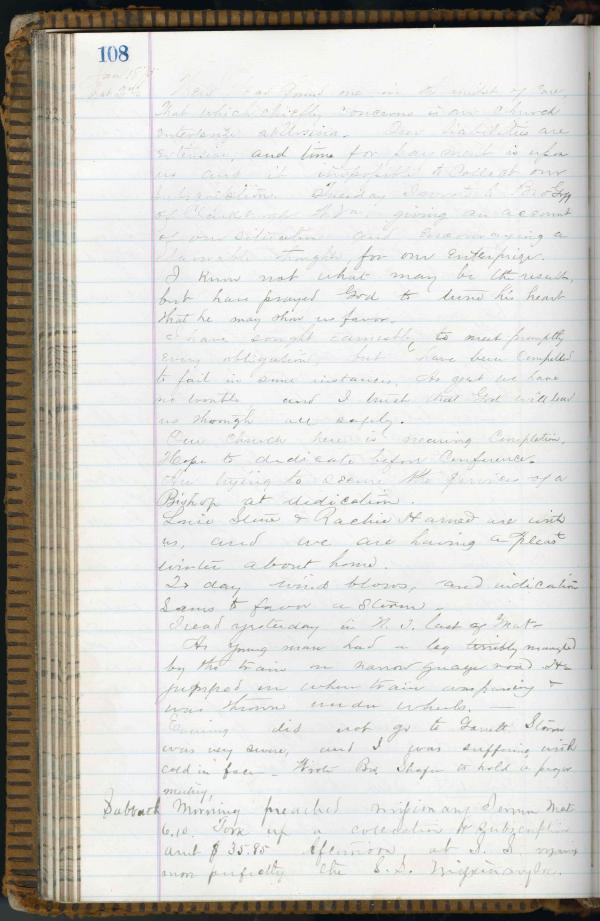 108
Jan
in the midst of care,
that which chiefly concerns is our church
enterprize at Our liabilities are
extensive, and time for payment is upon
us and it impossible to collect our
subscription. Tuesday I wrote to Bro
of giving an account
of our situation and encouraging a
thought for our enterprize.
I know not what may be the results,
but have prayed God to turn his heart
that he may show us favor.
I have sought earnestly to meet promptly
every obligation, but have been compelled
to fail in some instances. As yet we have
no trouble and I trust that God will lead
us through all safely.
Our church here is nearing completion.
Hope to dedicate before Conference.
Are trying to secure the services of a
Bishop at dedication.
& Rachie Harned are with
us, and we are having a pleast
winter about home.
To day wind blows, and indication
seems to favor a storm.
I read yesterday in N. T. last of Mat-
A young man had a leg terribly mangled
by the train on narrow guage road. He
jumped on when train was passing &
was thrown under wheels. —
Evening did not go to Garrett. Storm
was very severe, and I was suffering with
cold in face. Wrote Bro. Shafer to hold a prayer
meeting.
Sabbath Morning preached missionary sermon Mat
6.10. Took up a collection & subscription
amt $35.85 Afternoon at S. S.
more perfectly the S. S.